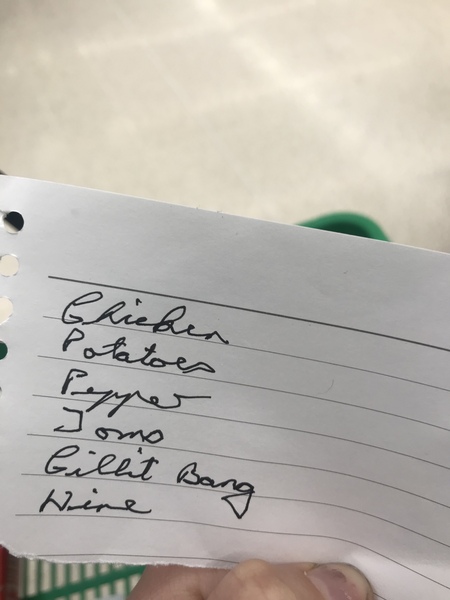 Chicken
Potatoes
Pepper
Toms
Cillit Bang
Wine